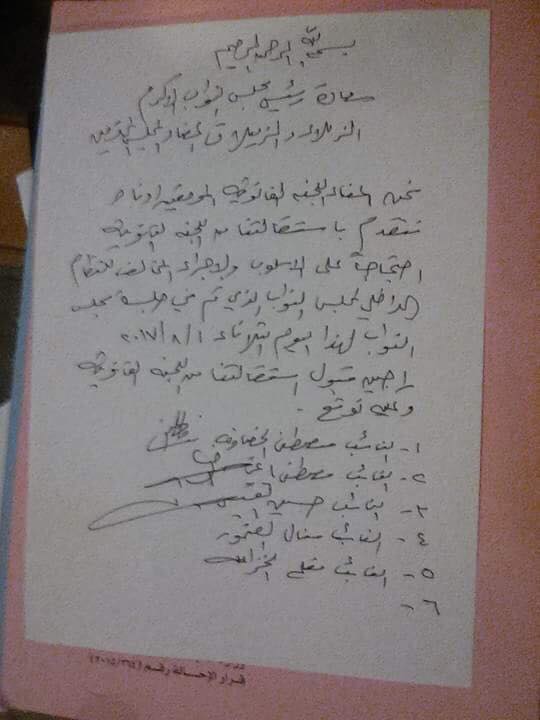 بسم الله الرحمن الرحيم
سعادة رئيس مجلس النواب الاكرم
الزملاء والزميلات اعضاء المجلس المحترمين
نحن اعضاء اللجنه القانونية الموقعين ادناه
نتقدم باستقالتنا من اللجنه القانونية
احتجاجاً على الاسلوب والاجراء المخالف للنظام
الداخلي لمجلس النواب الذي تم في جلسة مجلس
النواب لهذا اليوم الثلاثاء ٢٠١٧/٨/١
راجين قبول استقالتنا من اللجنه القانونية
وعليه نوقع .
١- النائب مصطفى الخصاونه
٢- النائب مصطفى
٣- النائب حسين القيسي
٤- النائب منال الضمور
٥- النائب مفلح الخزاعله
٦-
قرار الإحالة رقم (٢٠١٥/٣٦٤)